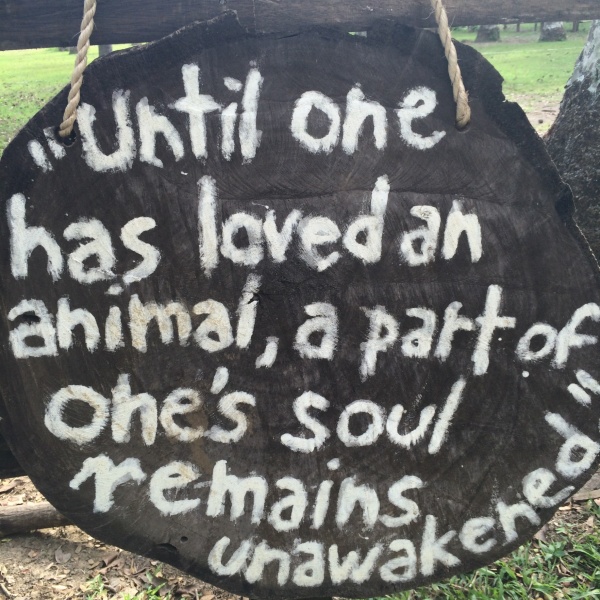 "Until one
has loved an
animal, a part of
one's soul
remains
unawakened"